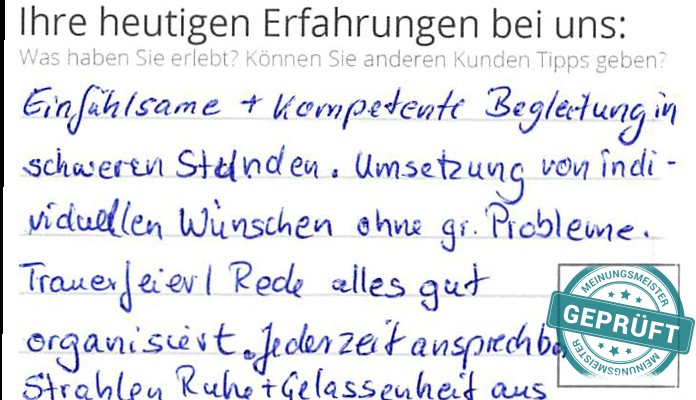 Ihre heutigen Erfahrungen bei uns:
Was haben Sie erlebt? Können Sie anderen Kunden Tipps geben?
Einfühlsame + Kompetente Begleitung in
schweren Stunden. Umsetzung von indi-
viduellen Wünschen ohne gr. Probleme.
Trauerfeier/ Rede alles gut
organisiert. Jederzeit ansprechba
Strahlen Ruhe + Gelassenheit aus
MEINUNGSMEISTER
GEPRÜFT
MEINUNGSMEISTER